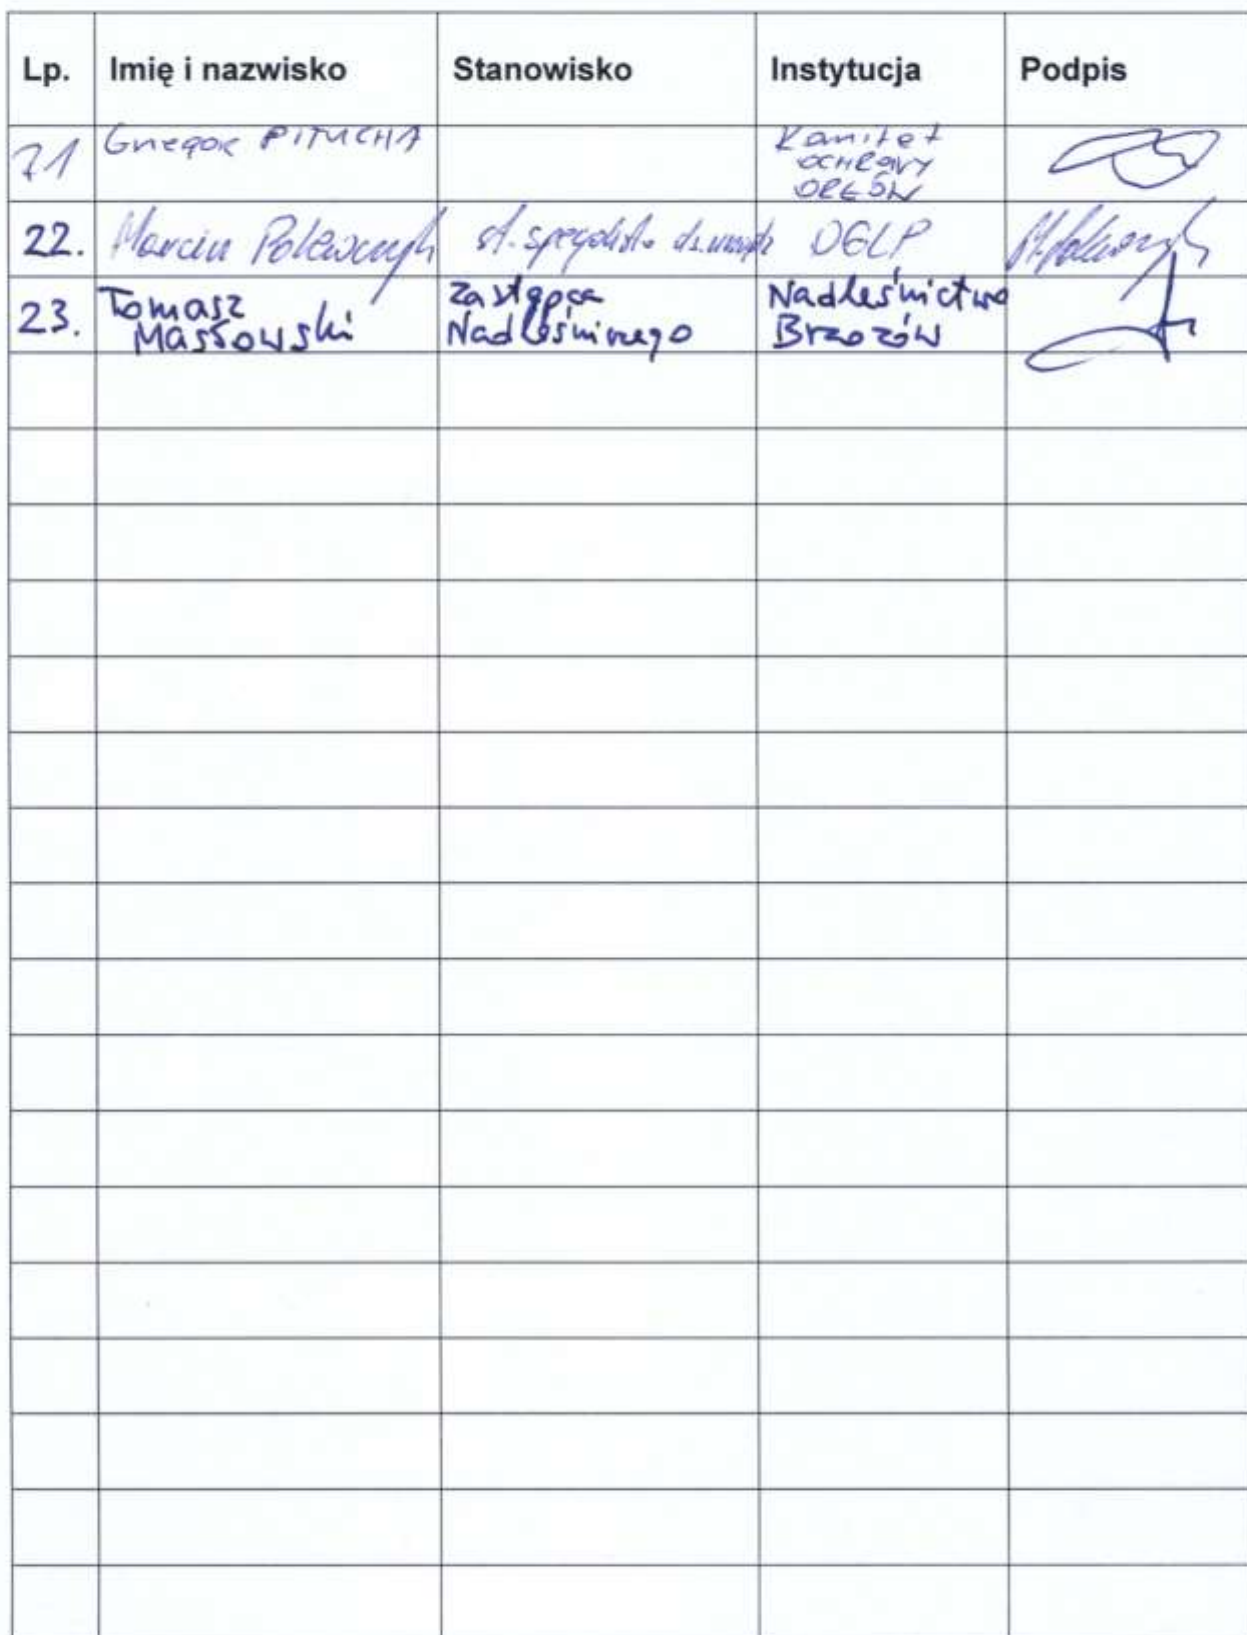 Lp. Imię i nazwisko Stanowisko Instytucja Podpis
21 Grzegorz PITUCHA Komitet
OCHRONY
ORŁÓW
22. Marcin Polewczyk st. specjalista ds. DGLP
23. Tomasz Zastępca Nadleśnictwo
Masłowski Nadleśniczego Brzozów